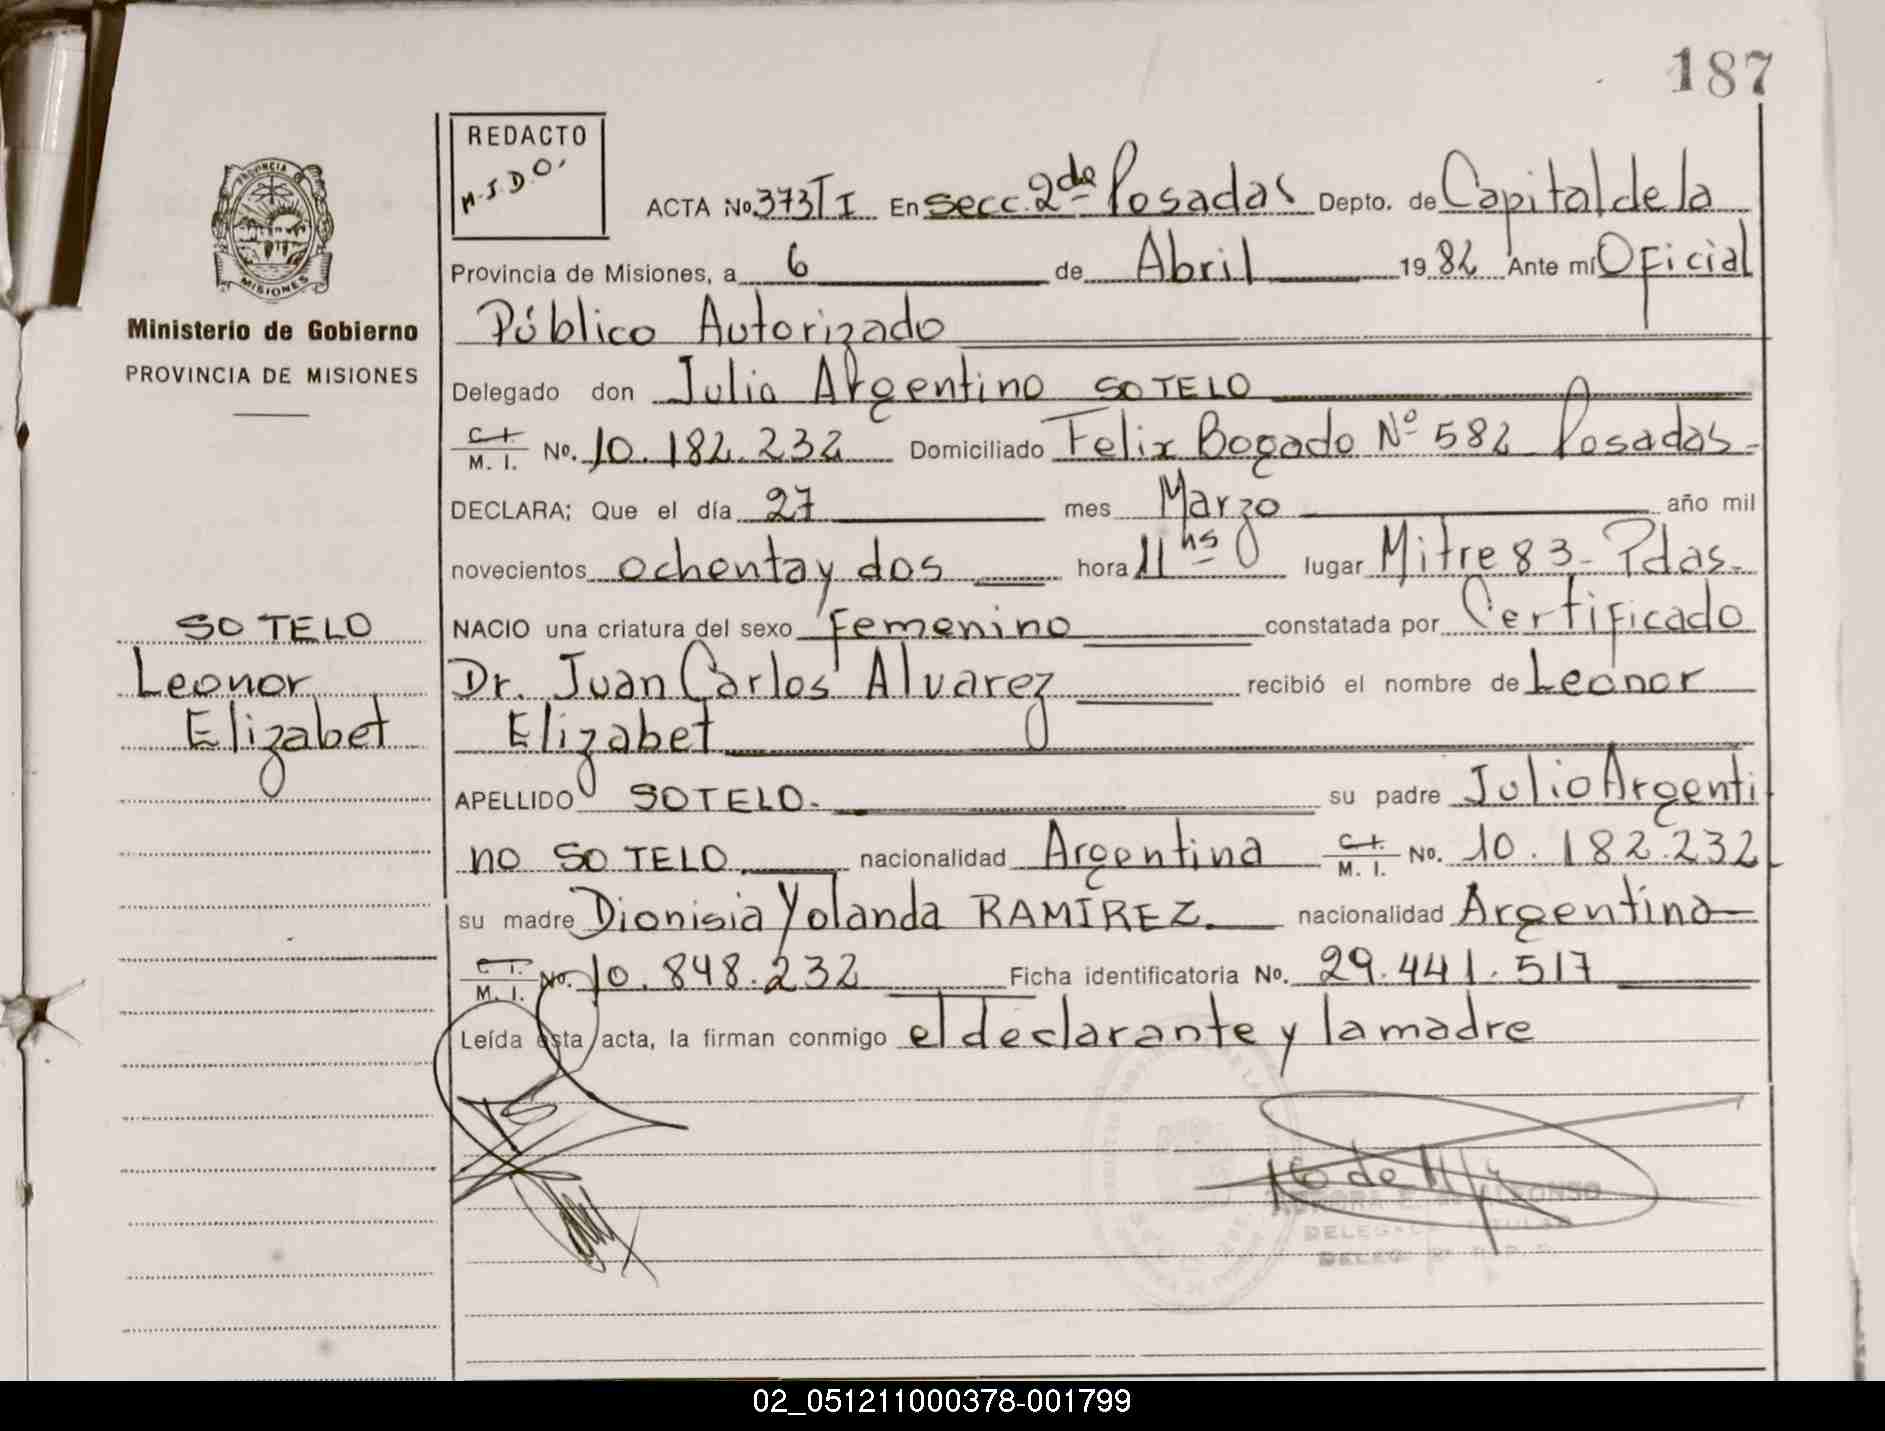 187
REDACTO
M.S.D.O.
PROVINCIA
MISIONES
Ministerio de Gobierno
PROVINCIA DE MISIONES
ACTA No. 373 T I En secc. 2da Posadas Depto. de Capital de la
Provincia de Misiones, a 6 de Abril 1982 Ante mí Oficial
Público Autorizado
Delegado don Julio Argentino SOTELO
C.I. M. I. No. 10.182.232 Domiciliado Felix Bogado Nº 582 Posadas-
DECLARA; Que el día 27 mes Marzo año mil
novecientos ochenta y dos hora 11 hs lugar Mitre 83- Pdas.
NACIO una criatura del sexo femenino constatada por Certificado
Dr. Juan Carlos Alvarez recibió el nombre de Leonor
Elizabet
APELLIDO SOTELO.- su padre Julio Argenti
no SOTELO nacionalidad Argentina C.I. M. I. No. 10.182.232
su madre Dionisia Yolanda RAMIREZ. nacionalidad Argentina
C.I. M. I. No. 10.848.232 Ficha identificatoria No. 29.441.517
Leída esta acta, la firman conmigo el declarante y la madre
SOTELO
Leonor
Elizabet
02_051211000378-001799